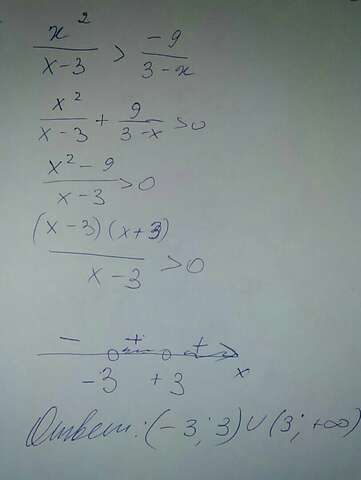 x² / (x-3) > -9 / (3-x)
x² / (x-3) + 9 / (3-x) > 0
(x² - 9) / (x-3) > 0
(x-3)(x+3) / (x-3) > 0
- + +
-3 +3 x
Ответ: (-3; 3) ∪ (3; +∞)